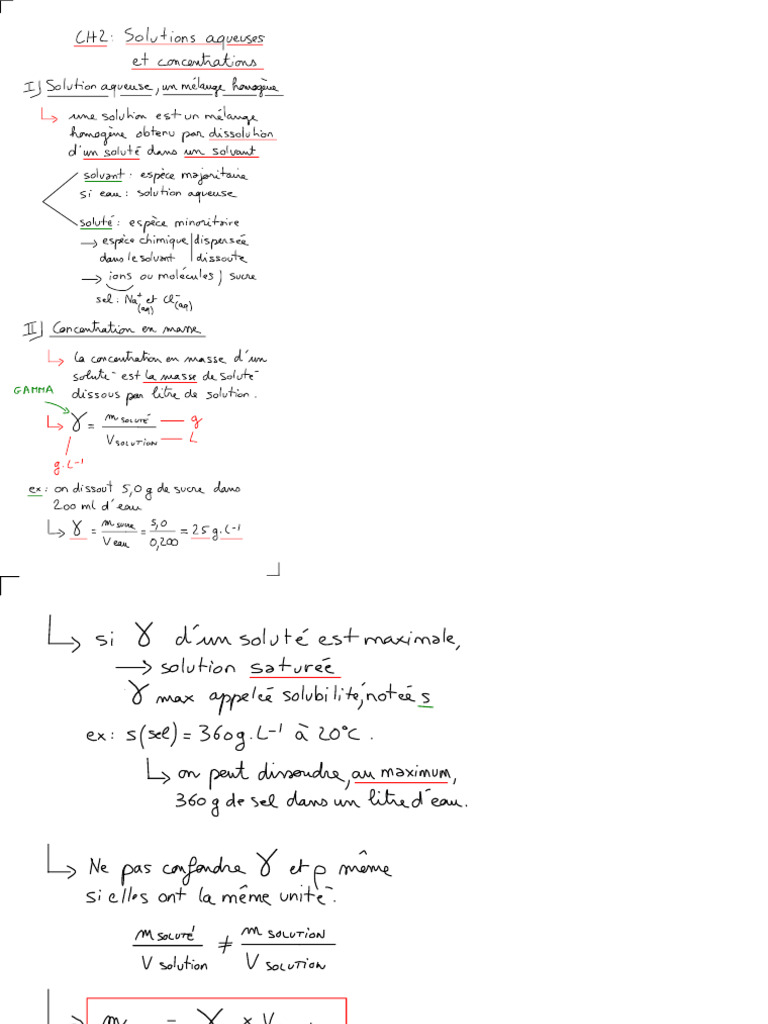 CH2 : Solutions aqueuses
et concentrations
I) Solution aqueuse, un mélange homogène
↳ une solution est un mélange
homogène obtenu par dissolution
d'un soluté dans un solvant
solvant : espèce majoritaire
si eau : solution aqueuse
soluté : espèce minoritaire
→ espèce chimique | dispersée
dans le solvant | dissoute
→ ions ou molécules ; sucre
sel : Na⁺(aq) et Cl⁻(aq)
II) Concentration en masse
↳ la concentration en masse d'un
soluté est la masse de soluté
dissous par litre de solution.
GAMMA
↳ γ = m SOLUTÉ / V SOLUTION — g — L
g.L⁻¹
ex : on dissout 5,0 g de sucre dans
200 ml d'eau
↳ γ = m sucre / V eau = 5,0 / 0,200 = 25 g.L⁻¹
↳ si γ d'un soluté est maximale,
→ solution saturée
γ max appelée solubilité, notée s
ex : s(sel) = 360g.L⁻¹ à 20°C.
↳ on peut dissoudre, au maximum,
360 g de sel dans un litre d'eau.
↳ Ne pas confondre γ et ρ même
si elles ont la même unité.
m SOLUTÉ / V solution ≠ m SOLUTION / V SOLUTION
↳ m = γ × V